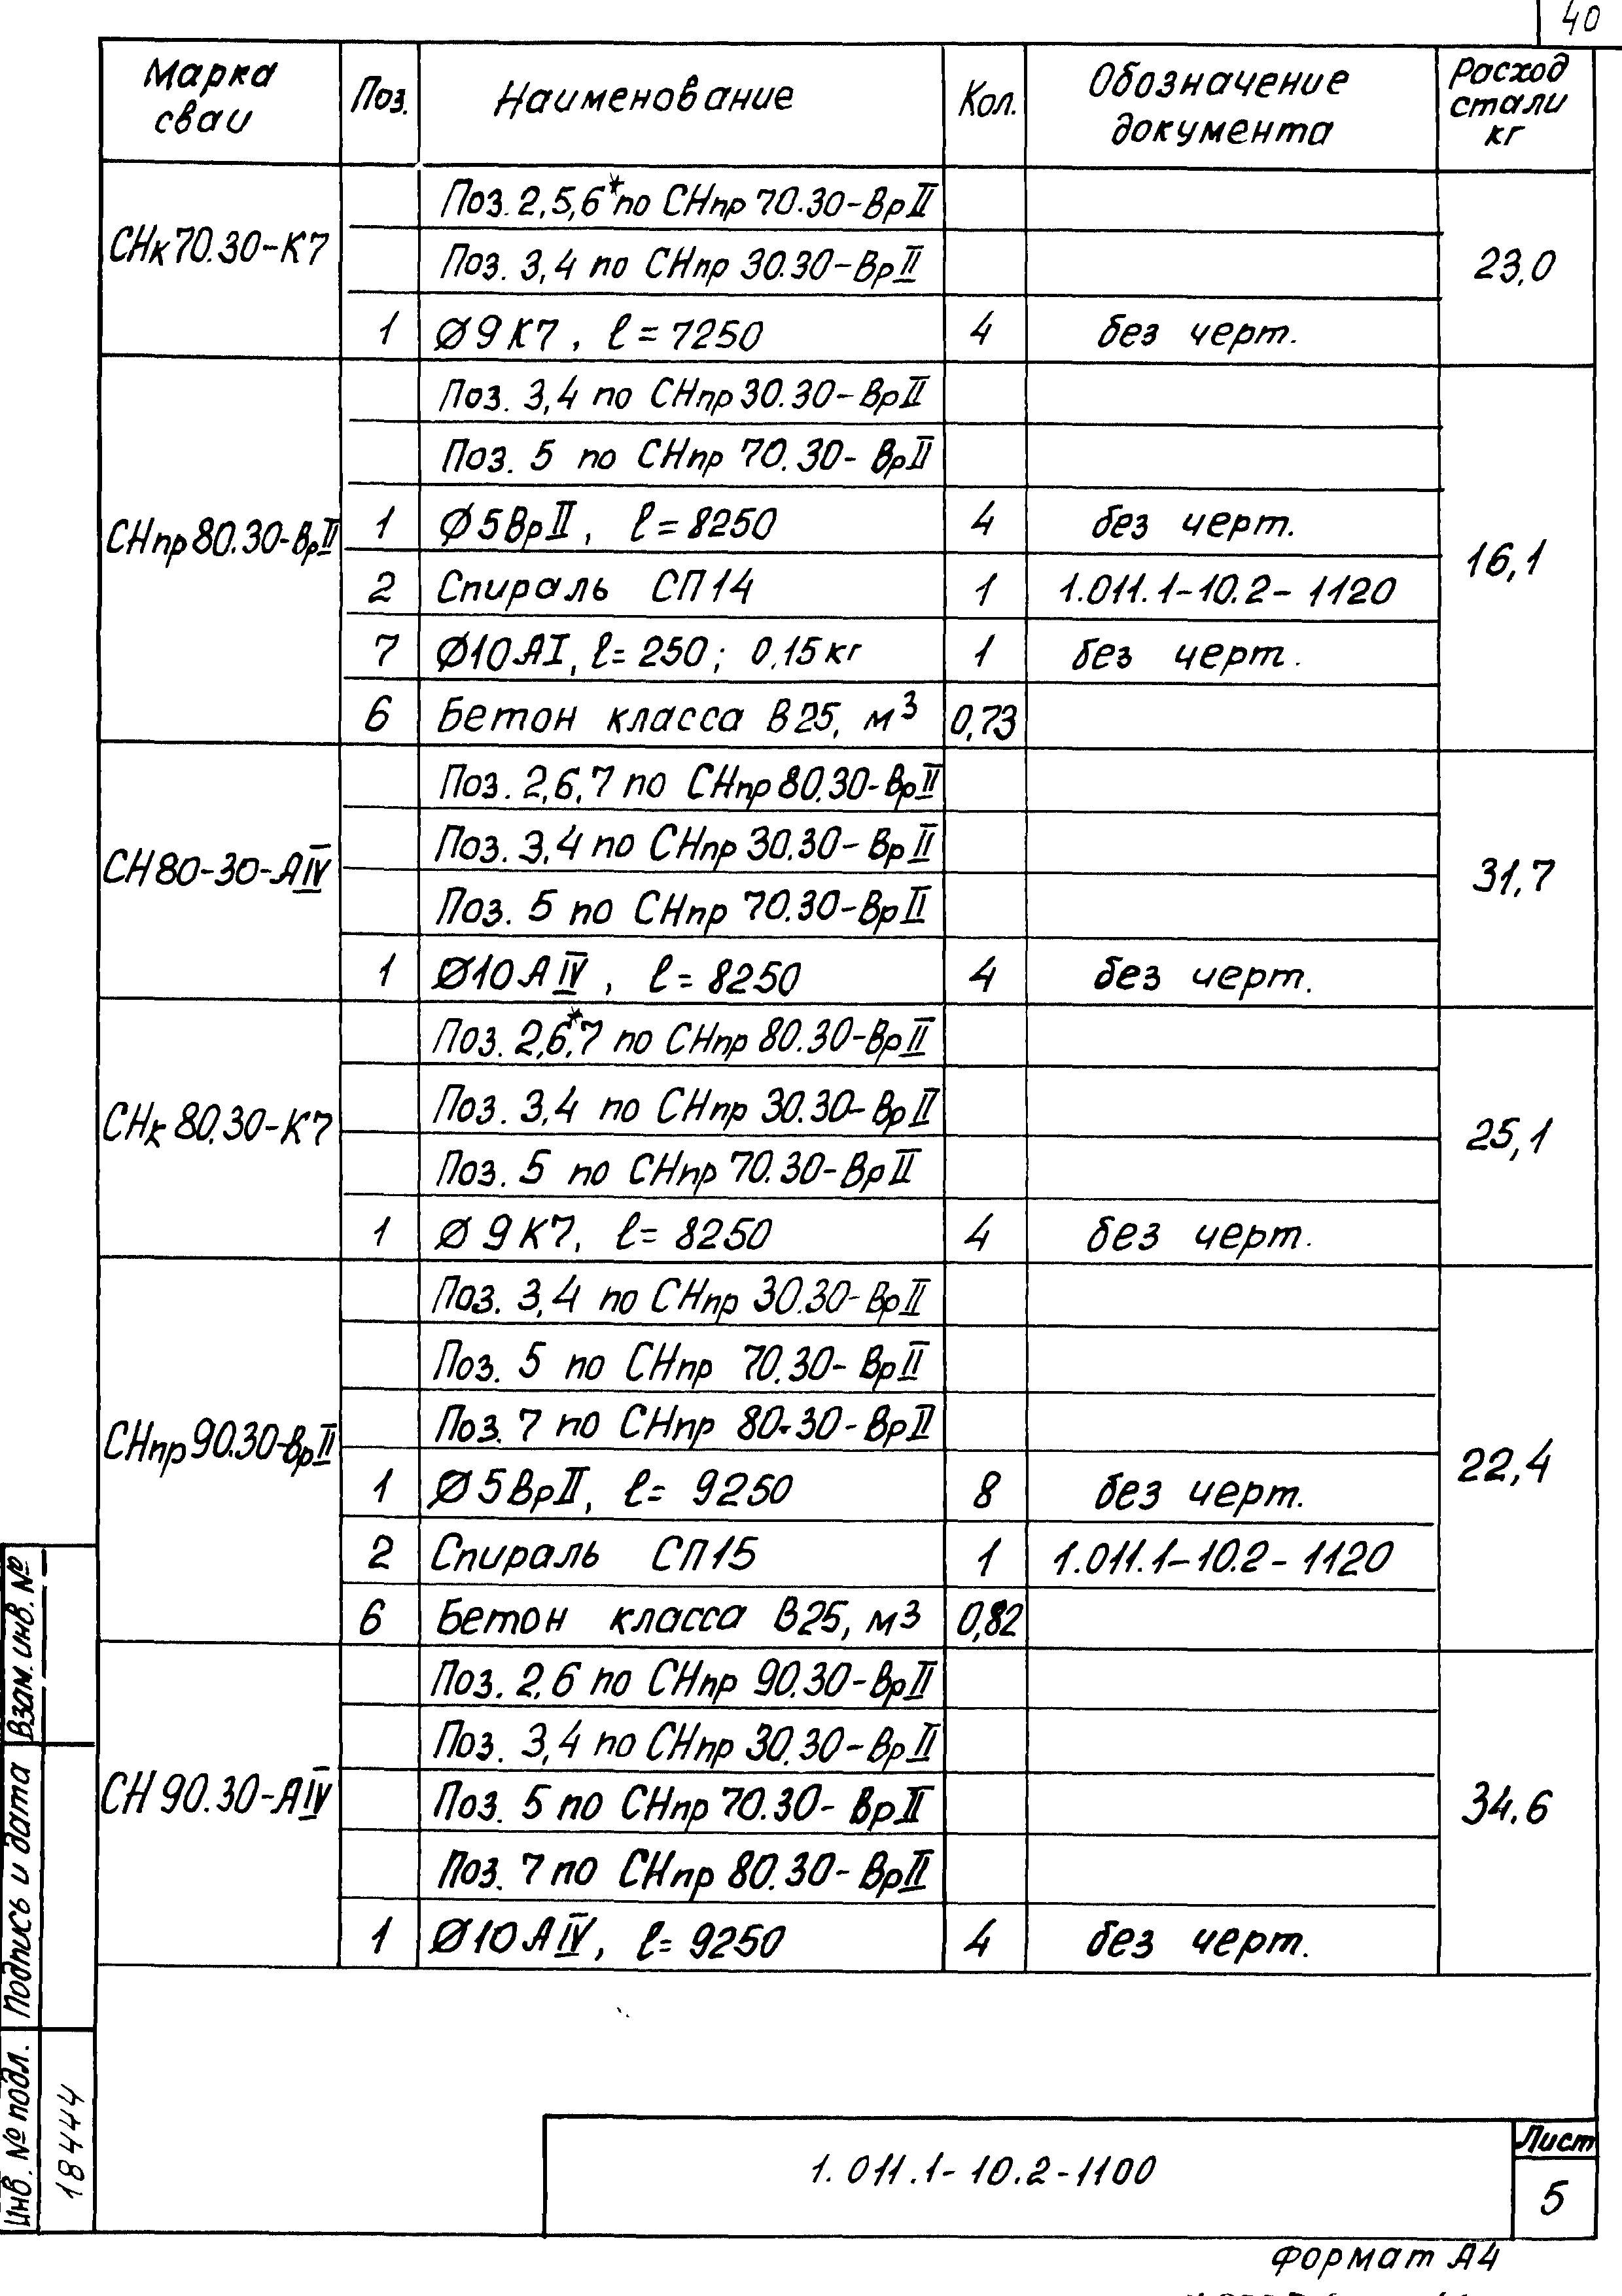 40
Марка сваи Поз. Наименование Кол. Обозначение документа Расход стали кг
СНк70.30-К7 23,0
Поз. 2,5,6* по СНпр 70.30-ВрII
Поз. 3,4 по СНпр 30.30-ВрII
1 Ø9К7, ℓ=7250 4 без черт.
СНпр80.30-ВрII 16,1
Поз. 3,4 по СНпр30.30-ВрII
Поз. 5 по СНпр 70.30-ВрII
1 Ø5ВрII, ℓ=8250 4 без черт.
2 Спираль СП14 1 1.011.1-10.2-1120
7 Ø10АI, ℓ=250; 0,15кг 1 без черт.
6 Бетон класса В25, м³ 0,73
СН80-30-АIV 31,7
Поз. 2,6,7 по СНпр80.30-ВрII
Поз. 3,4 по СНпр30.30-ВрII
Поз. 5 по СНпр 70.30-ВрII
1 Ø10АIV, ℓ=8250 4 без черт.
СНк 80.30-К7 25,1
Поз. 2,6*,7 по СНпр 80.30-ВрII
Поз. 3,4 по СНпр 30.30-ВрII
Поз. 5 по СНпр 70.30-ВрII
1 Ø9К7, ℓ=8250 4 без черт.
СНпр90.30-ВрII 22,4
Поз. 3,4 по СНпр 30.30-ВрII
Поз. 5 по СНпр 70.30-ВрII
Поз. 7 по СНпр 80.30-ВрII
1 Ø5ВрII, ℓ=9250 8 без черт.
2 Спираль СП15 1 1.011.1-10.2-1120
6 Бетон класса В25, м³ 0,82
СН 90.30-АIV 34.6
Поз. 2,6 по СНпр 90.30-ВрII
Поз. 3,4 по СНпр 30.30-ВрII
Поз. 5 по СНпр70.30-ВрII
Поз. 7 по СНпр 80.30-ВрII
1 Ø10АIV, ℓ=9250 4 без черт.
Взам. инв. №
Подпись и дата
Инв. № подл.
18444
1.011.1-10.2-1100
Лист
5
Формат А4